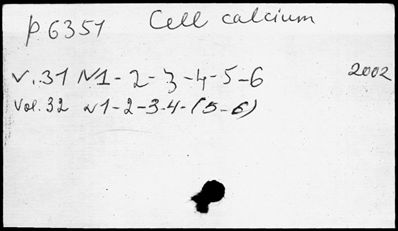 p 6351 Cell calcium
v.31 N1-2-3-4-5-6 2002
Vol.32 N1-2-3-4-(5-6)